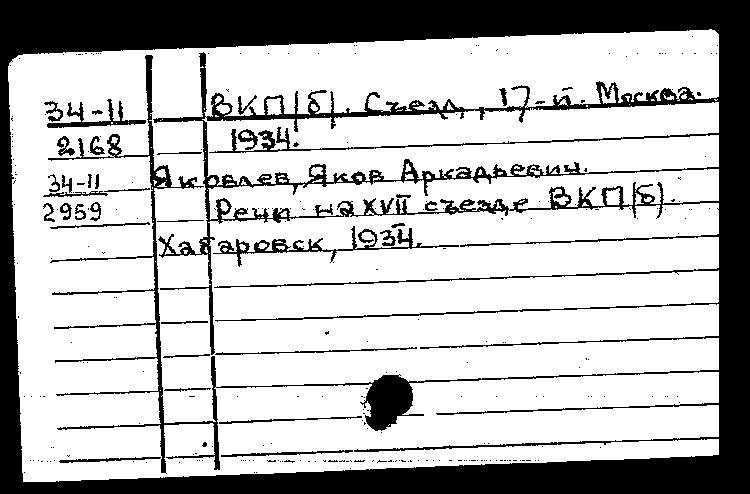 34-11 ВКП(б). Съезд, 17-й. Москва.
2168 1934.
34-11 Яковлев, Яков Аркадьевич.
2959 Речи на XVII съезде ВКП(б).
Хабаровск, 1934.